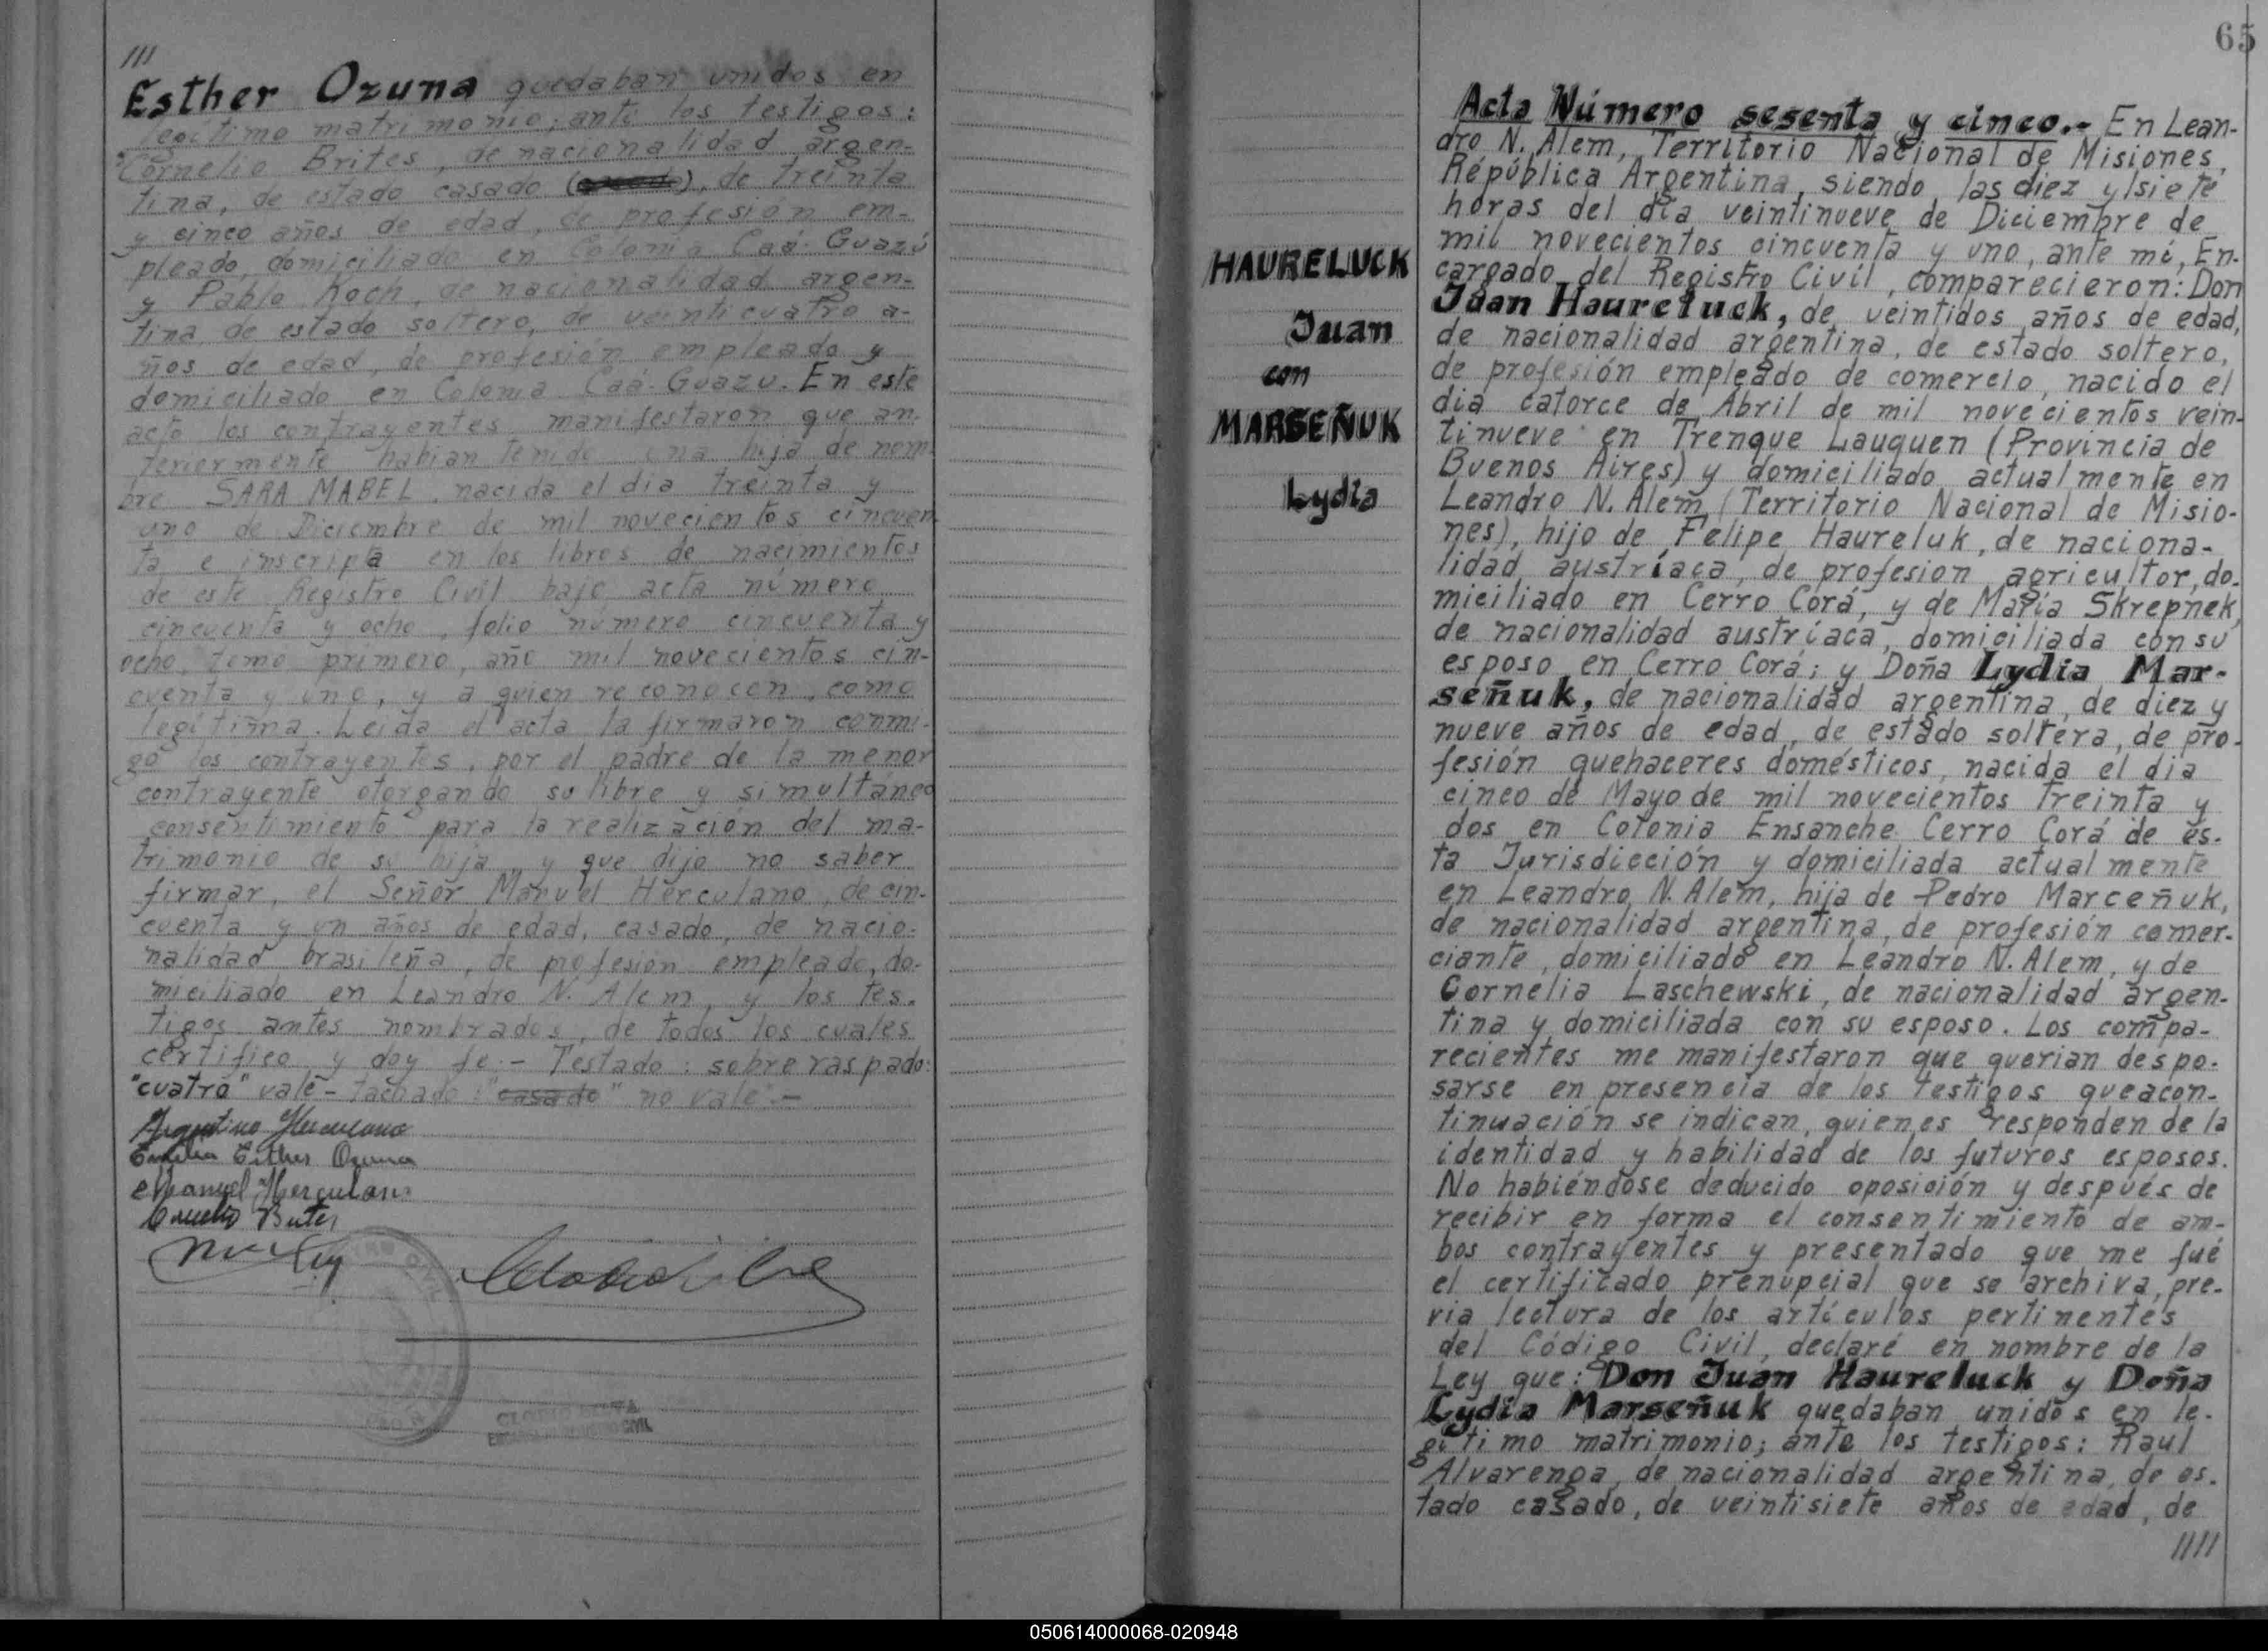 ///
Esther Ozuna quedaban unidos en
legítimo matrimonio; ante los testigos:
Cornelio Brites, de nacionalidad argen-
tina, de estado casado (casado), de treinta
y cinco años de edad, de profesión em-
pleado, domiciliado en Colonia Caá-Guazú
y Pablo Koch, de nacionalidad argen-
tina, de estado soltero, de veinticuatro a-
ños de edad, de profesión empleado y
domiciliado en Colonia Caá-Guazú. En este
acto los contrayentes manifestaron que an-
teriormente habían tenido una hija de nom-
bre SARA MABEL, nacida el día treinta y
uno de Diciembre de mil novecientos cincuen-
ta e inscripta en los libros de nacimientos
de este Registro Civil bajo acta número
cincuenta y ocho, folio número cincuenta y
ocho, tomo primero, año mil novecientos cin-
cuenta y uno, y a quien reconocen, como
legítima. Leída el acta la firmaron conmi-
go los contrayentes, por el padre de la menor
contrayente otorgando su libre y simultáneo
consentimiento para la realización del ma-
trimonio de su hija, y que dijo no saber
firmar, el Señor Manuel Herculano, de cin-
cuenta y un años de edad, casado, de nacio-
nalidad brasileña, de profesión empleado, do-
miciliado en Leandro N. Alem, y los tes-
tigos antes nombrados, de todos los cuales
certifico y doy fe.- Testado: sobre raspado:
"cuatro" vale - tachado: "casado" no vale.-
Argentino Herculano
Emilia Esther Ozuna
Manuel Herculano
Cornelio Brites
65
Acta Número sesenta y cinco.- En Lean-
dro N. Alem, Territorio Nacional de Misiones,
República Argentina, siendo las diez y siete
horas del día veintinueve de Diciembre de
mil novecientos cincuenta y uno, ante mí, En-
cargado del Registro Civil, comparecieron: Don
Juan Haureluck, de veintidos años de edad,
de nacionalidad argentina, de estado soltero,
de profesión empleado de comercio, nacido el
día catorce de Abril de mil novecientos vein-
tinueve en Trenque Lauquen (Provincia de
Buenos Aires) y domiciliado actualmente en
Leandro N. Alem (Territorio Nacional de Misio-
nes), hijo de Felipe Haureluk, de naciona-
lidad austríaca, de profesion agricultor, do-
miciliado en Cerro Corá, y de María Skrepnek,
de nacionalidad austríaca, domiciliada con su
esposo en Cerro Corá; y Doña Lydia Mar-
señuk, de nacionalidad argentina, de diez y
nueve años de edad, de estado soltera, de pro-
fesión quehaceres domésticos, nacida el día
cinco de Mayo de mil novecientos treinta y
dos en Colonia Ensanche Cerro Corá de es-
ta Jurisdicción y domiciliada actualmente
en Leandro N. Alem, hija de Pedro Marceñuk,
de nacionalidad argentina, de profesión comer-
ciante, domiciliado en Leandro N. Alem, y de
Cornelia Laschewski, de nacionalidad argen-
tina y domiciliada con su esposo. Los compa-
recientes me manifestaron que querian despo-
sarse en presencia de los testigos queacon-
tinuación se indican, quienes responden de la
identidad y habilidad de los futuros esposos.
No habiéndose deducido oposición y después de
recibir en forma el consentimiento de am-
bos contrayentes y presentado que me fué
el certificado prenupcial que se archiva, pre-
via lectura de los artículos pertinentes
del Código Civil, declaré en nombre de la
Ley que: Don Juan Haureluck y Doña
Lydia Marseñuk quedaban unidos en le-
gítimo matrimonio; ante los testigos: Raul
Alvarenga, de nacionalidad argentina, de es-
tado casado, de veintisiete años de edad, de
////
HAURELUCK
Juan
con
MARSEÑUK
Lydia
050614000068-020948